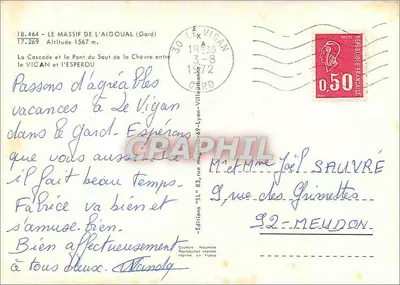 18.464 - LE MASSIF DE L'AIGOUAL (Gard)
17.269 Altitude 1567 m.
La Cascade et le Pont du Saut de la Chèvre entre
le VIGAN et l'ESPEROU
30 LE VIGAN
18H30
3-8
1972
GARD
REPUBLIQUE FRANÇAISE
0,50
Passons d'agréables
vacances à Le Vigan
dans le Gard. Espérons
que vous aussi
il fait beau temps.
Fabrice va bien et
s'amuse bien.
Bien affectueusement
à tous deux.
Mr et Mme Joël SAUVRÉ
9, rue des Grisettes
92-MEUDON
Editions "SL" 83, rue
69-Lyon-Villeurbanne
Couleurs Naturelles
Reproduction interdite
Imprimé en France
DELCAMPHTL